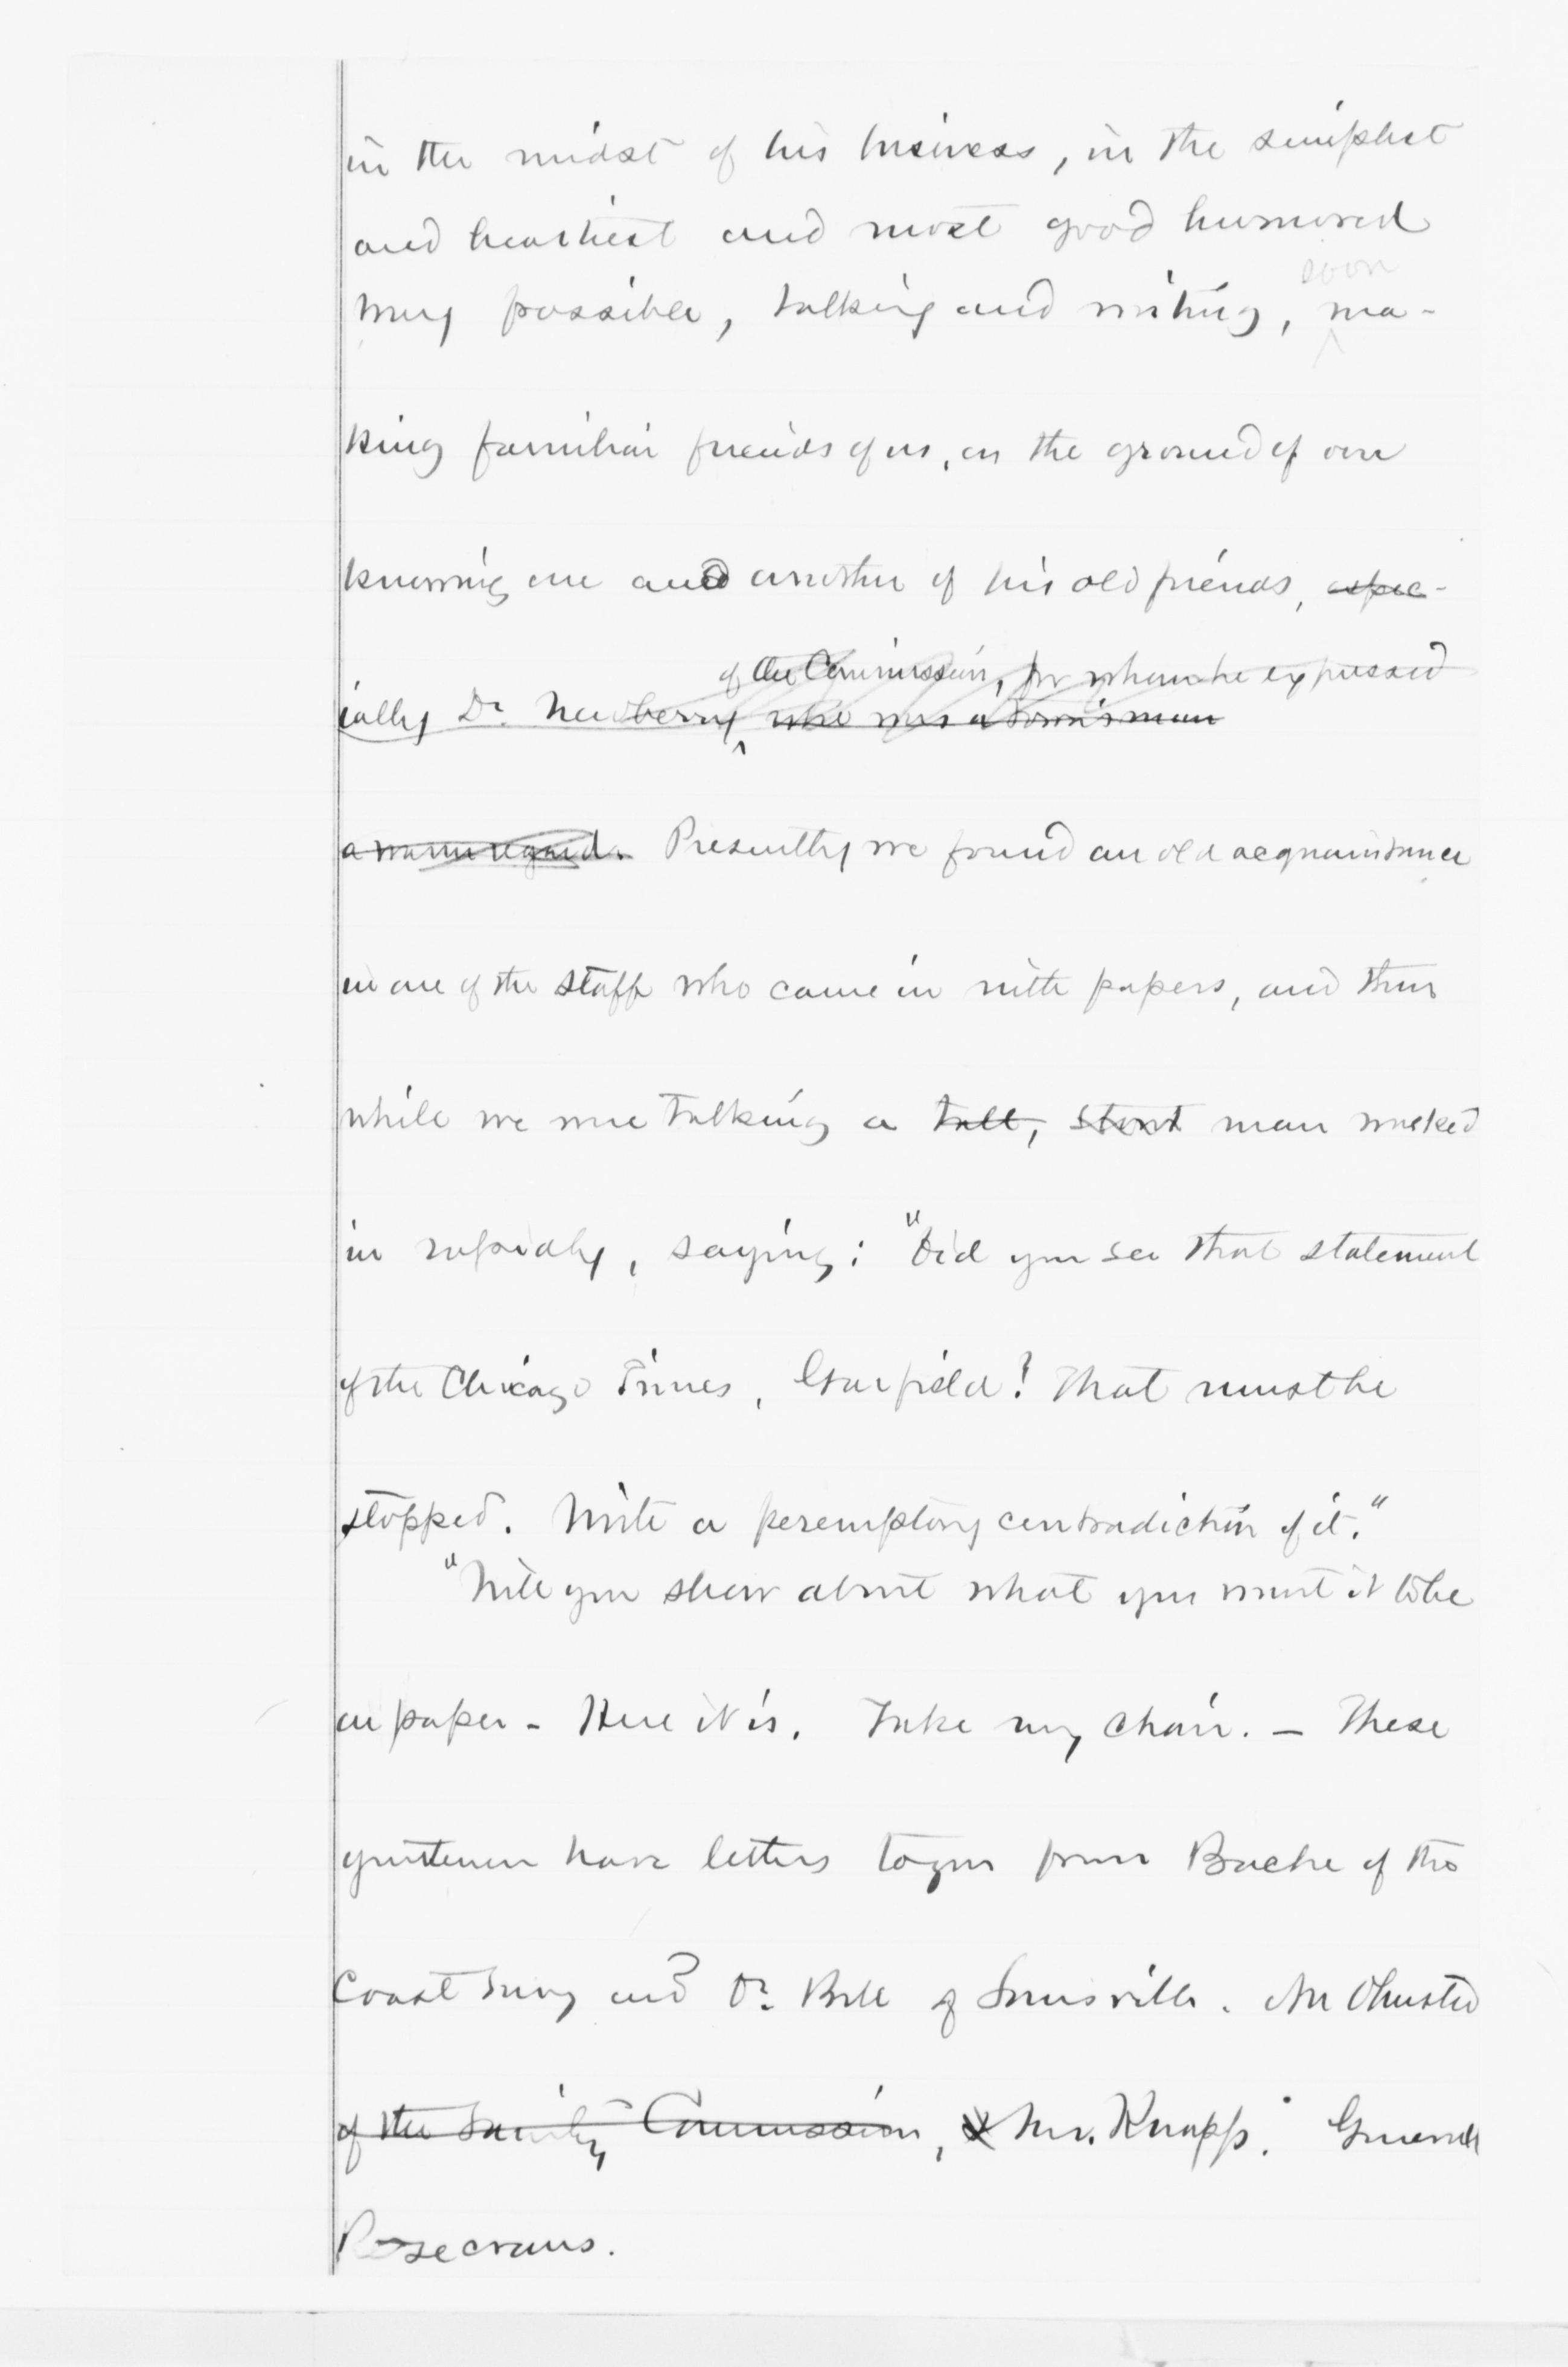 in the midst of his business, in the simplest
and heartiest and most good humored
way possible, talking and writing, soon ma-
king familiar friends of us, on the ground of our
knowing one and another of his old friends, espec-
of the Commission, for whom he expressed
ially Dr. Newberry, who was a townsman
a warm regard. Presently we found an old acquaintance
in one of the staff who came in with papers, and then
while we were talking a tall, stout man walked
in rapidly, saying: "Did you see that statement
of the Chicago Times, Garfield? That must be
stopped. Write a peremptory contradiction of it."
"Will you show about what you want it to be
on paper - Here it is. Take my chair. — These
gentlemen have letters to you from Bache of the
Coast Survey and Dr. Bell of Louisville. Mr Olmsted
of the Sanitary Commission, & Mr. Knapp. General
Rosecrans.